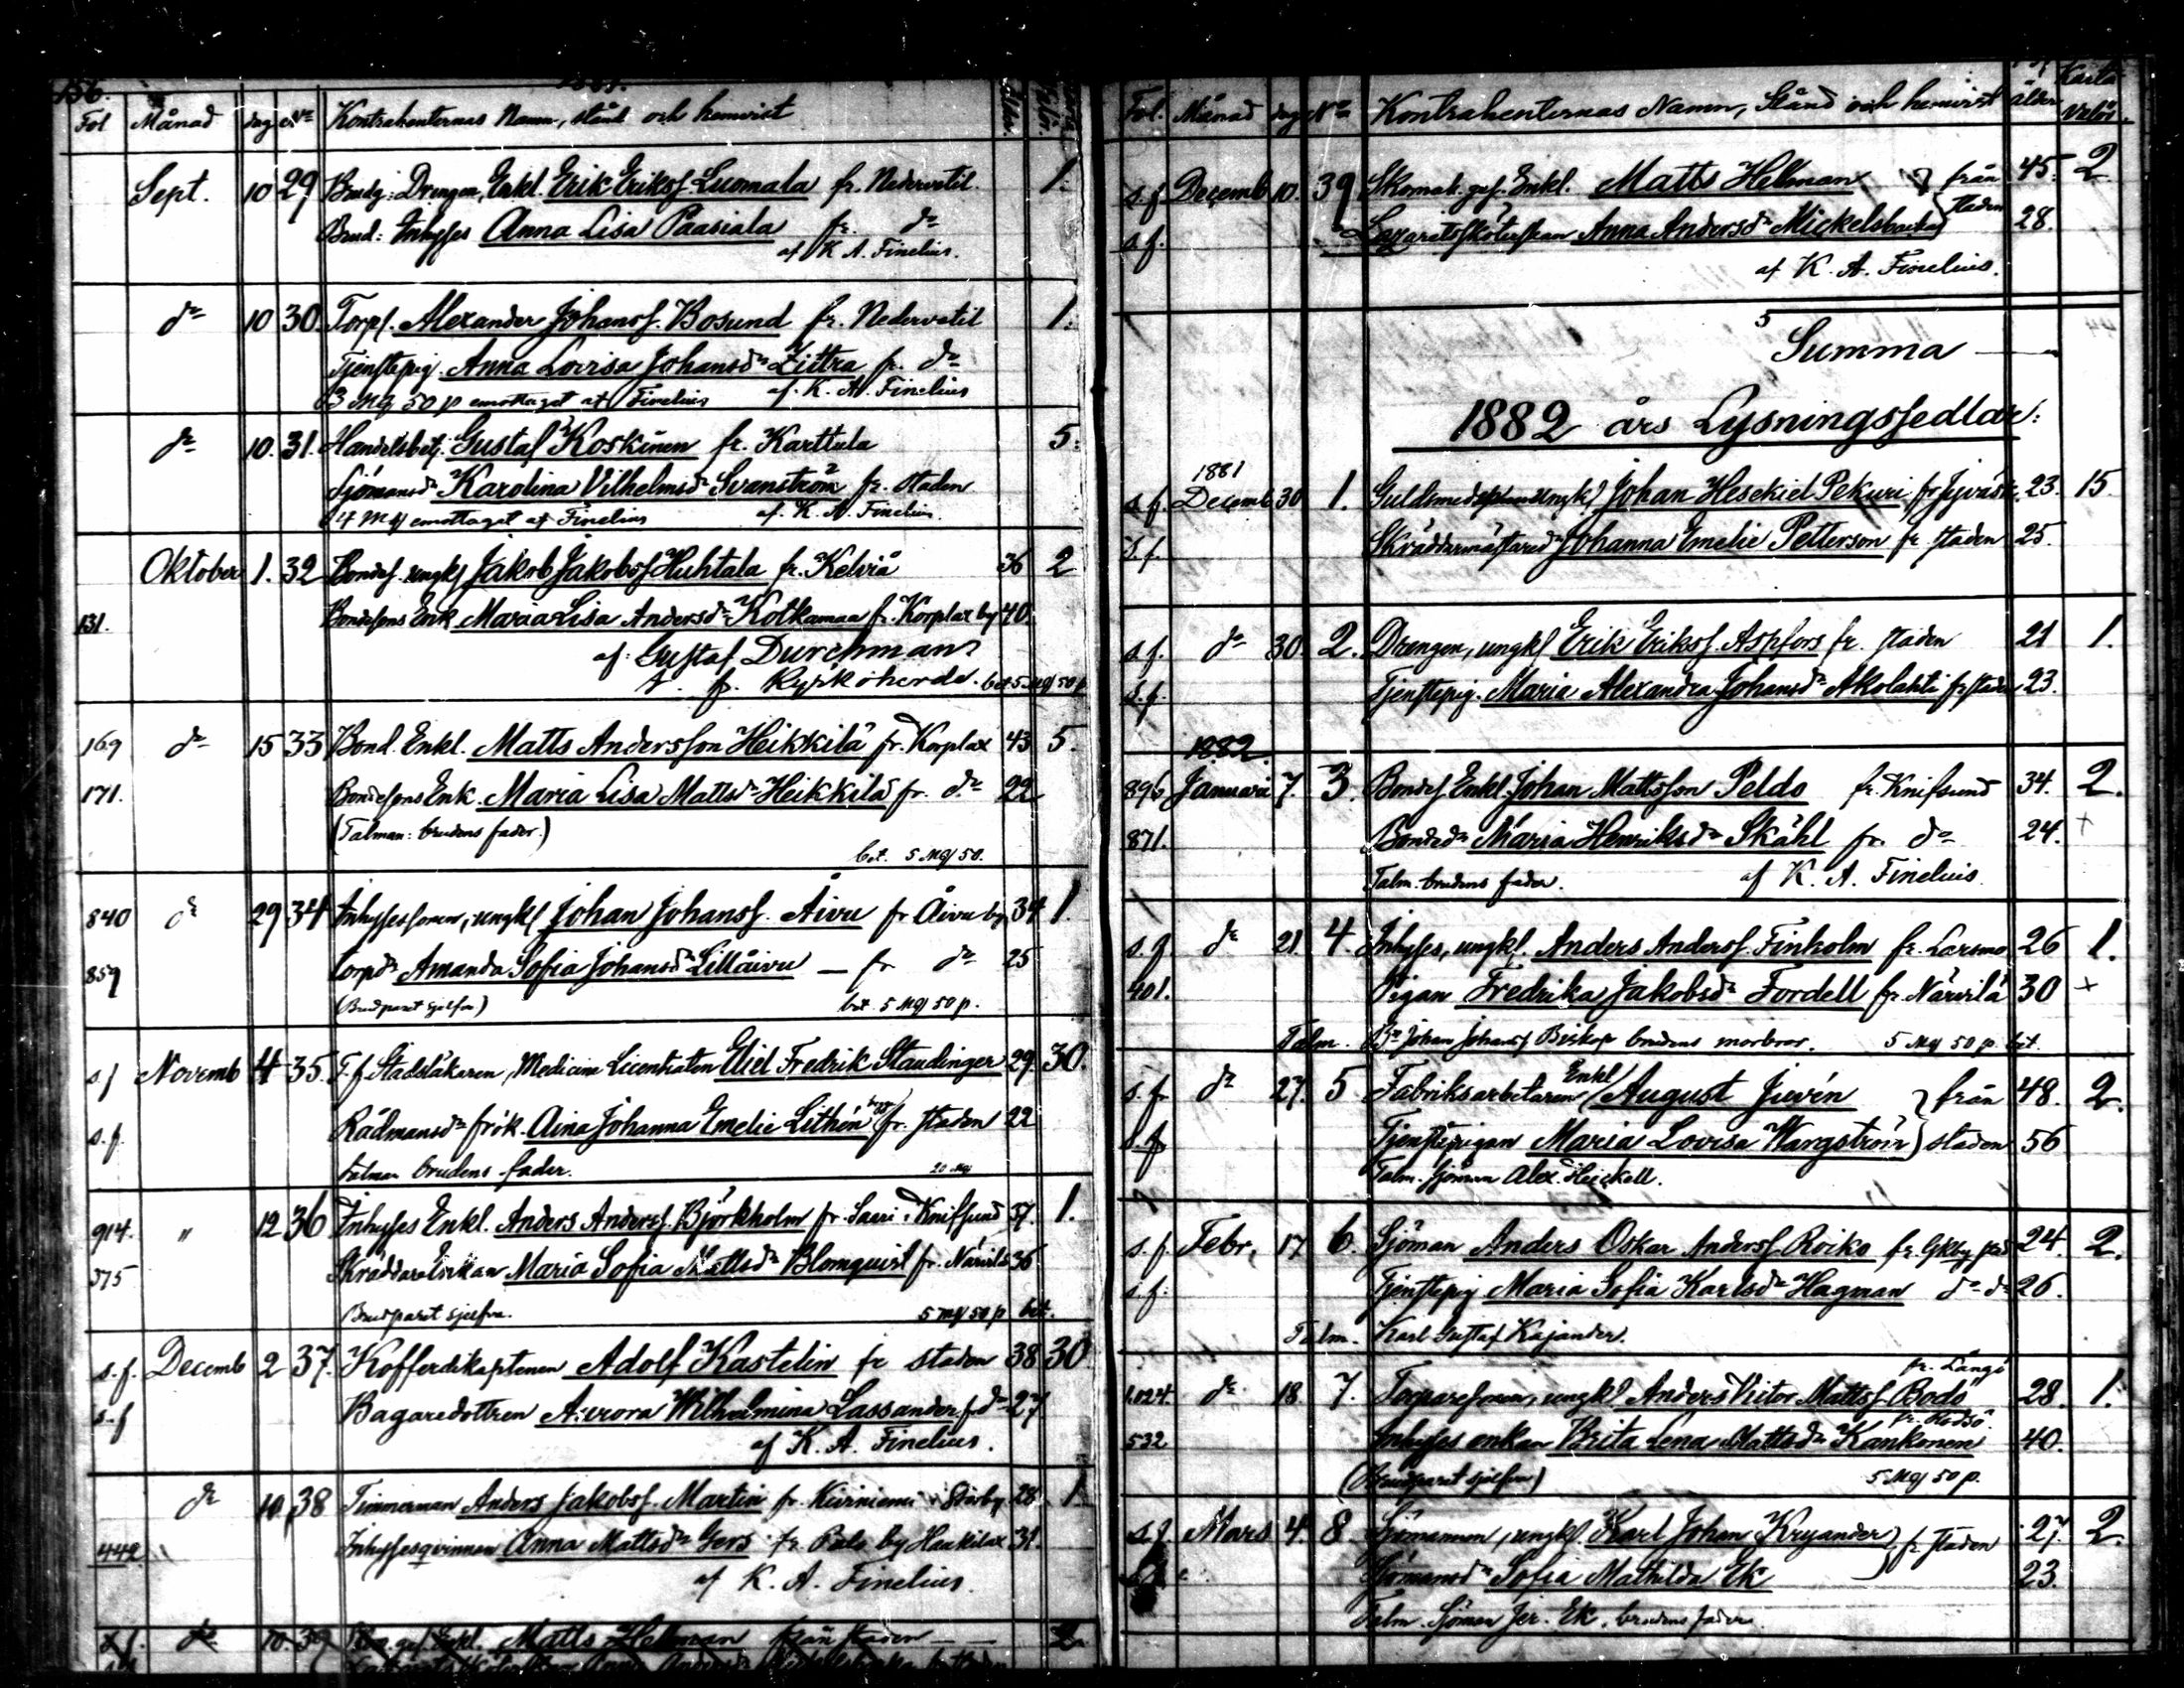 156.
1881.
Fol Månad dag No Kontrahenternas Namn, stånd och hemvist Ålder
Sept. 10 29 Brudg: Drengen, Enkl. Erik Eriksf Luomala fr. Nedervetil 1.
Brud: Inhyses Anna Lisa Paasiala fr. do
af K. A. Finelius.
do 10 30 Torpf. Alexander Johansf. Bosund fr. Nedervetil 1.
Tjenstepig. Anna Lovisa Johansdr Zittra fr. do
3 Mg 50 p emottaget af Finelius af. K. A. Finelius
do 10. 31. Handelsbetj. Gustaf Koskinen fr. Karttula 5.
Sjömansdr Karolina Vilhelmsdr Svanström fr. staden
4 Mg emottaget af Finelius af. K. A. Finelius.
Oktober 1. 32 Bondes. ungk Jakob Jakobsf Huhtala fr. Kelviå 36 2
131. Bondesons Enk Maria Lisa Andersdr Kotkamaa fr. Korplax by 40.
af: Gustaf Durchman
v. p. Kyrkoherde. bet 5 Mg 50 p
169 do 15 33 Bond. Enkl. Matts Andersson Heikkilä fr. Korplax 43 5.
171. Bondesons Enk. Maria Lisa Mattsdr Heikkilä fr. do 22
(Talman: brudens fader.)
bet. 5 Mg 50.
840 do 29 34 Inhysessonen, ungkl Johan Johansf. Åivu fr Åivu by 34 1.
859 Torpdr Amanda Sofia Johansdr Lillåivu — fr do 25
(Brudparet sjelfva) bet. 5 Mg 50 p.
s. f Novemb 4 35. T. f Stadsläkaren, Medicine Licentiaten Eliel Fredrik Staudinger 29. 30.
s. f. Rådmansdr frök. Aina Johanna Emelie Lithén fr. staden 22
talman brudens fader. 20 Mg
914. " 12 36 Inhyses Enkl. Anders Andersf. Björkholm fr. Saari i Knifsund 37. 1.
375 Skräddareenkan Maria Sofia Mattsdr Blomquist fr. Närvilä 36
Brudparet sjelfva. 5 Mg 50 p bet.
s. f. Decemb 2 37. Kofferdikaptenen Adolf Kastelin fr staden 38 30
s. f Bagaredottren Aurora Wilhelmina Lassander f. do 27
af K. A. Finelius.
do 10 38 Timmerman Anders Jakobsf. Martin fr. Kiviniemi i Storby 28 1
442 Inhysesqvinnan Anna Mattsdr Gers fr. Palo by Haakilax 31.
af K. A. Finelius.
s. f. do 10 39 Enkl. Matts Helman från staden — 2.
Fol. Månad dag No Kontrahenternas Namn, Stånd och hemvist Ålder Karta Valör
s. f Decemb 10. 39 Skomak. ges. Enkl. Matts Helman } från 45. 2
s. f. Lazarettsköterskan Anna Andersdr Mickelsbacka } staden 28.
af K. A. Finelius.
5
Summa —
1882 års Lysningssedlar:
1881
s. f. Decemb 30 1. Guldsmeds ungk) Johan Hesekiel Pekuri fr Jyväsk. 23. 15.
s. f. Skräddarmästaredr Johanna Emelie Petterson fr. staden 25.
s. f. do 30. 2. Drengen, ungkl Erik Eriksf. Aspfors fr. staden 21 1.
s. f. Tjenstepig. Maria Alexandra Johansdr Akolahti fr staden 23.
1882.
896 Januari 7. 3. Bondes. Enkl. Johan Mattsson Peldo fr. Knifsund 34. 2.
871. Bondedr Maria Henriksdr Skåhl fr. do 24. +
Talm. brudens fader. af K. A. Finelius
s. f do 21. 4 Inhyses, ungkl. Anders Andersf. Finholm fr. Larsmo 26 1.
401. Pigan Fredrika Jakobsdr Fordell fr. Närvilä 30 +
Talm. Bn Johan Johansf Biskop brudens morbror. 5 Mg 50 p. bet.
s. f. do 27. 5 Fabriksarbetaren Enkl August Juvén } från 48. 2.
s. f. Tjenstepigan Maria Lovisa Wangström } staden 56
Talm. Sjöman Alex. Heickell.
s. f Febr. 17 6. Sjöman Anders Oskar Andersf. Roiko fr. Gkby stad 24. 2.
s. f. Tjenstepig Maria Sofia Karlsdr Hagman do do 26.
Talm. Karl Gustaf Kajander.
fr. Långö
1.024. do 18 7. Torparesonen, ungkl Anders Victor Mattsf. Bodö 28. 1.
fr. Rödsö.
532 Inhyses enkan Brita Lena Mattsdr Kankonen 40.
(Brudparet sjelfva) 5 Mg 50 p.
s. f. Mars 4. 8 Sjömannen, ungkl. Karl Johan Kryander } fr. staden 27. 2.
Sjömansdr Sofia Mathilda Ek 23.
Talm. Sjöman Jer. Ek, brudens fader.